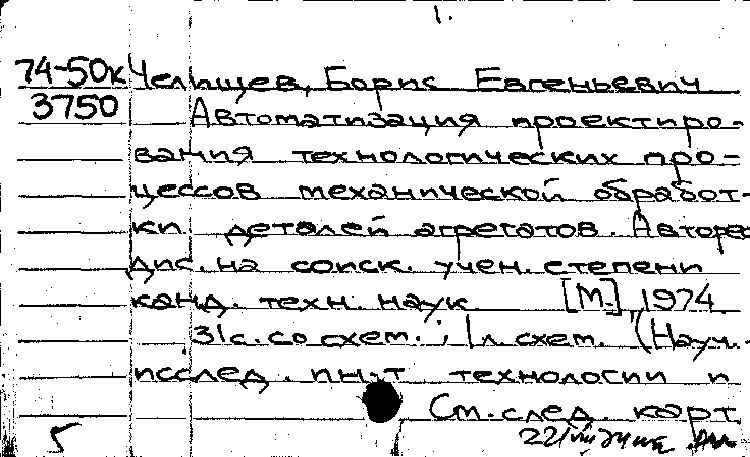 1.
74-50к Челищев, Борис Евгеньевич
3750 Автоматизация проектиро-
вания технологических про-
цессов механической обработ-
ки деталей агрегатов. Авторе
Дис. на соиск. учен. степени
канд. техн. наук [М.], 1974
31с. со схем.; 1л. схем. (Науч.-
исслед. ин-т технологии и
См. след. карт.
5 22/VIII 74